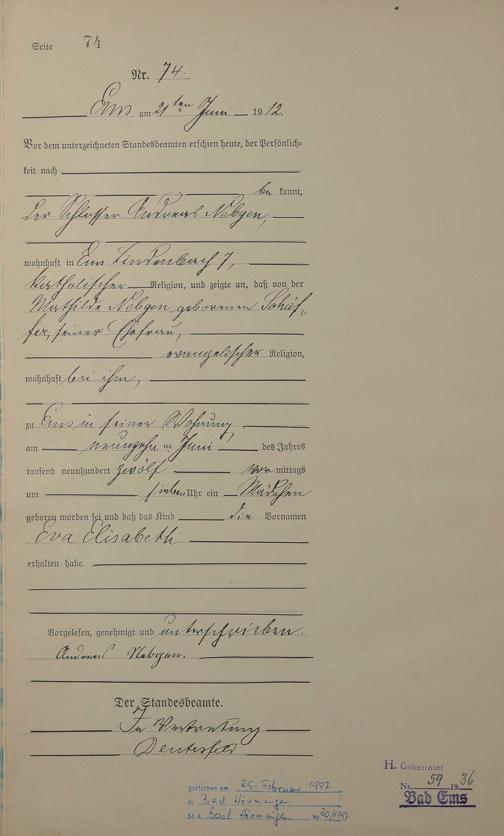 Seite 74
Nr. 74.
Ems am 21ten Juni 1912.
Vor dem unterzeichneten Standesbeamten erschien heute, der Persönlich-
keit nach
be kannt,
der Schlosser Andreas Nebgen,
wohnhaft in Ems Lindenbach 7,
katholischer Religion, und zeigte an, daß von der
Mathilde Nebgen, geborenen Schäf-
fer, seiner Ehefrau,
evangelischer Religion,
wohnhaft bei ihm,
zu Ems in seiner Wohnung
am neunzehnten Juni des Jahres
tausend neunhundert zwölf vor mittags
um sieben Uhr ein Mädchen
geboren worden sei und daß das Kind die Vornamen
Eva Elisabeth
erhalten habe.
Vorgelesen, genehmigt und unterschrieben.
Andreas Nebgen.
Der Standesbeamte.
In Vertretung
H. Geheiratet
Nr. 59 1936
Bad Ems
gestorben am 25. Februar 1997
in Bad Hönningen
St. A. Bad Hönningen Nr. 20/1997